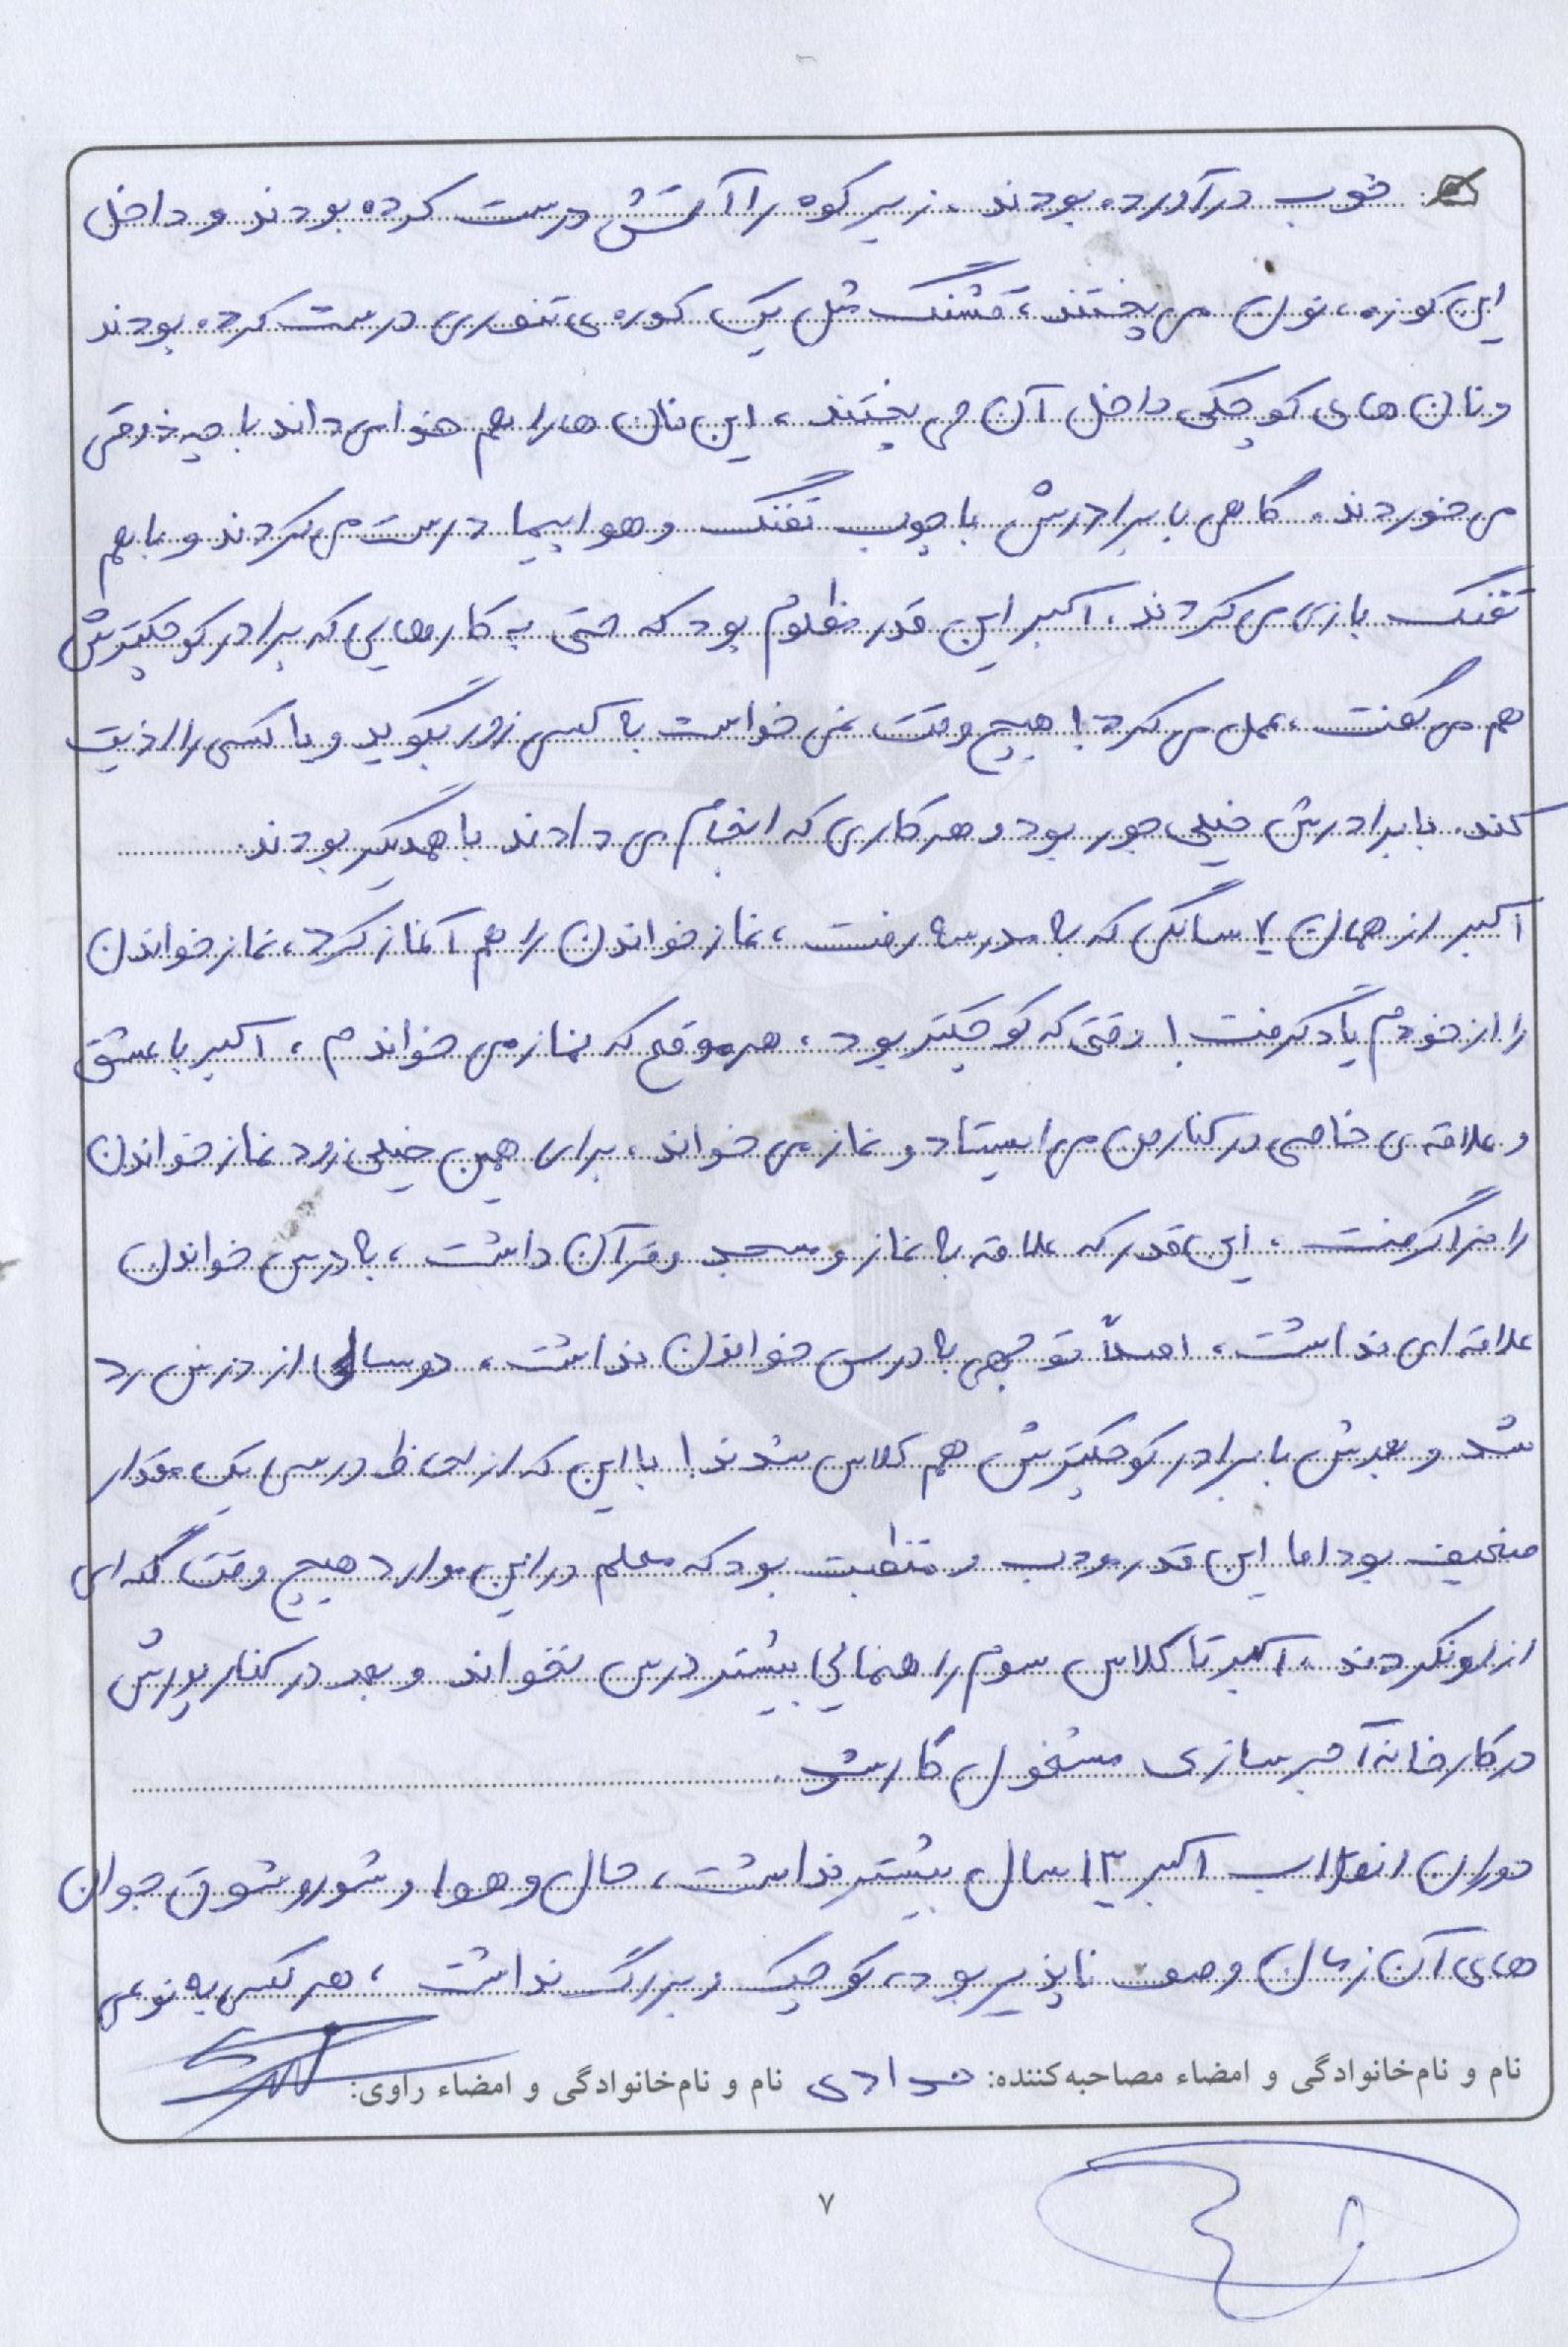 خوب درآورده بودند. زیر کوه را آتش درست کرده بودند و داخل
این کوزه، نون می پختند، قشنگ مثل یک کوره ی تنوری درست کرده بودند
و نان های کوچکی داخل آن می پختند، این نان ها را هم خدا می داند با چه ذوقی
می خوردند. گاهی با برادرش با چوب تفنگ و هواپیما درست می کردند و با هم
تفنگ بازی می کردند. اکبر این قدر مظلوم بود که حتی به کارهایی که برادر کوچکترش
هم می گفت، عمل می کرد! هیچ وقت نمی خواست به کسی زور بگوید و یا کسی را اذیت
کند. با برادرش خیلی جور بود و هر کاری که انجام می دادند با همدیگر بودند.
اکبر از همان ۷ سالگی که به مدرسه رفت، نماز خواندن را هم آغاز کرد، نماز خواندن
را از خودم یاد گرفت! وقتی که کوچکتر بود، هر موقع که نماز می خواندم، اکبر با عشق
و علاقه ی خاصی در کنار من می ایستاد و نماز می خواند. برای همین خیلی زود نماز خواندن
را فرا گرفت. این قدر که علاقه به نماز و مسجد و قرآن داشت، به درس خواندن
علاقه ای نداشت. اصلاً توجهی به درس خواندن نداشت، دو سالی از درس رد
شد و بعدش با برادر کوچکترش هم کلاس شدند! با این که از لحاظ درسی یک مقدار
ضعیف بود اما این قدر مودب و منظبت بود که معلم در این موارد هیچ وقت گله ای
از او نکردند. اکبر تا کلاس سوم راهنمایی بیشتر درس نخواند و بعد در کنار پدرش
در کارخانه آجر سازی مشغول کار شد.
دوران انقلاب اکبر ۱۳ سال بیشتر نداشت، حال و هوا و شور و شوق جوان
های آن زمان وصف ناپذیر بود، کوچیک و بزرگ نداشت، هر کس به نوعی
نام و نام‌خانوادگی و امضاء مصاحبه‌کننده: نام و نام‌خانوادگی و امضاء راوی:
۷